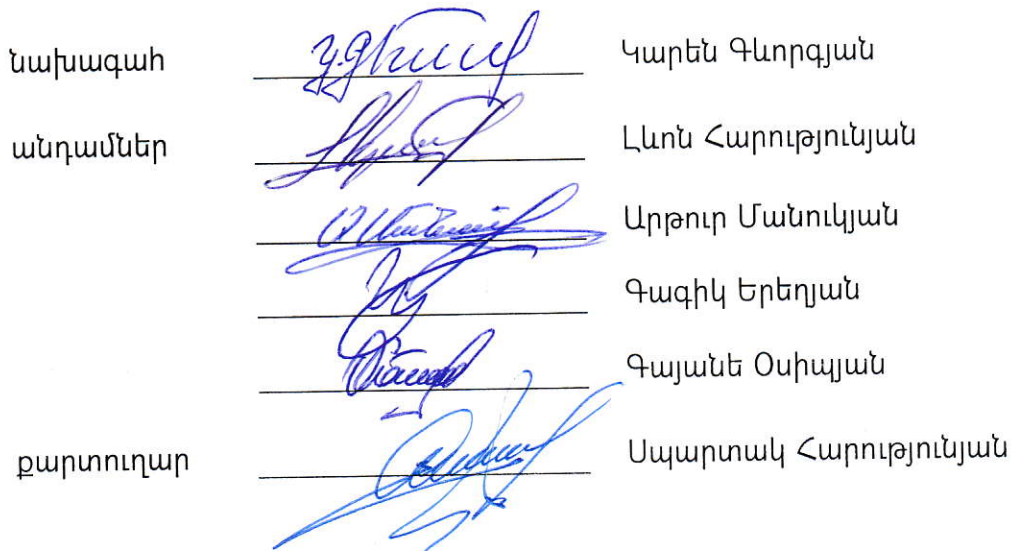 նախագահ Կարեն Գևորգյան
անդամներ Լևոն Հարությունյան
Արթուր Մանուկյան
Գագիկ Երեղյան
Գայանե Օսիպյան
քարտուղար Սպարտակ Հարությունյան